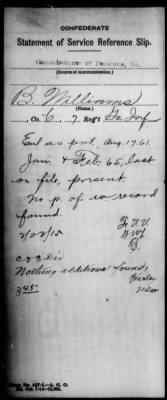 CONFEDERATE
Statement of Service Reference Slip.
Commissioner of Pensions, Ga.
(Source of communication.)
B. Williams
(Name.)
Co. C, 7 Reg't Ga Inf
Enl as pvt. Aug. 17. 61.
Jan. & Feb. 65, last
on file, present.
No p of w record
found.
2/23/15
C & S Div
Nothing additional found,
345
Form No. 467-1—A. G. O.